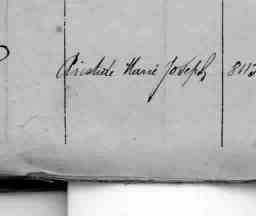 Aristide Marie Joseph 8112